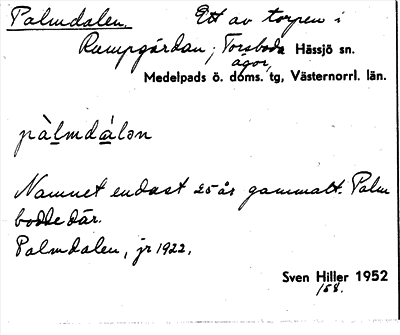 Palmdalen. Ett av torpen i
Rampgårdan, Torsboda Hässjö sn.
ägor,
Medelpads ö. doms. tg, Västernorrl. län.
pàlmdálən
Namnet endast 25 år gammalt. Palm
bodde där.
Palmdalen, jr 1922.
Sven Hiller 1952
/58.